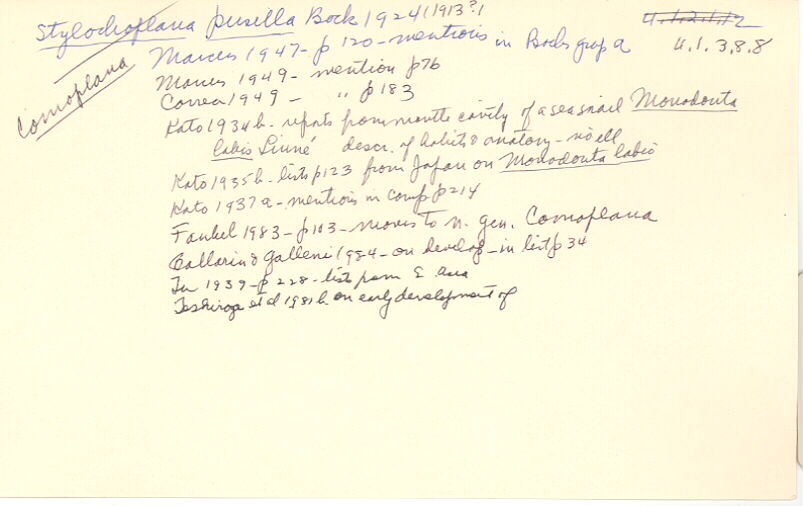 Stylochoplana pusilla Bock 1924 (1913?)
4.1.2.1.12
4.1.3.8.8
Comoplana
Marcus 1947 - p 120 - mentions in Bocks grup a
Marcus 1949 - mention p76
Correa 1949 - " p 183
Kato 1934b - reports from mantle cavity of a sea snail Monodonta
labio Linné descr. of habits & anatomy - no ill
Kato 1935b - lists p123 from Japan on Monodonta labio
Kato 1937a - mentions in comp p214
Faubel 1983 - p103 - moves to n. gen. Comoplana
Ballarin & Galleni 1984 - on develop - in list p 34
Tu 1939 - p 228 - lists from E Asia
Teshirogi et al 1981b on early development of